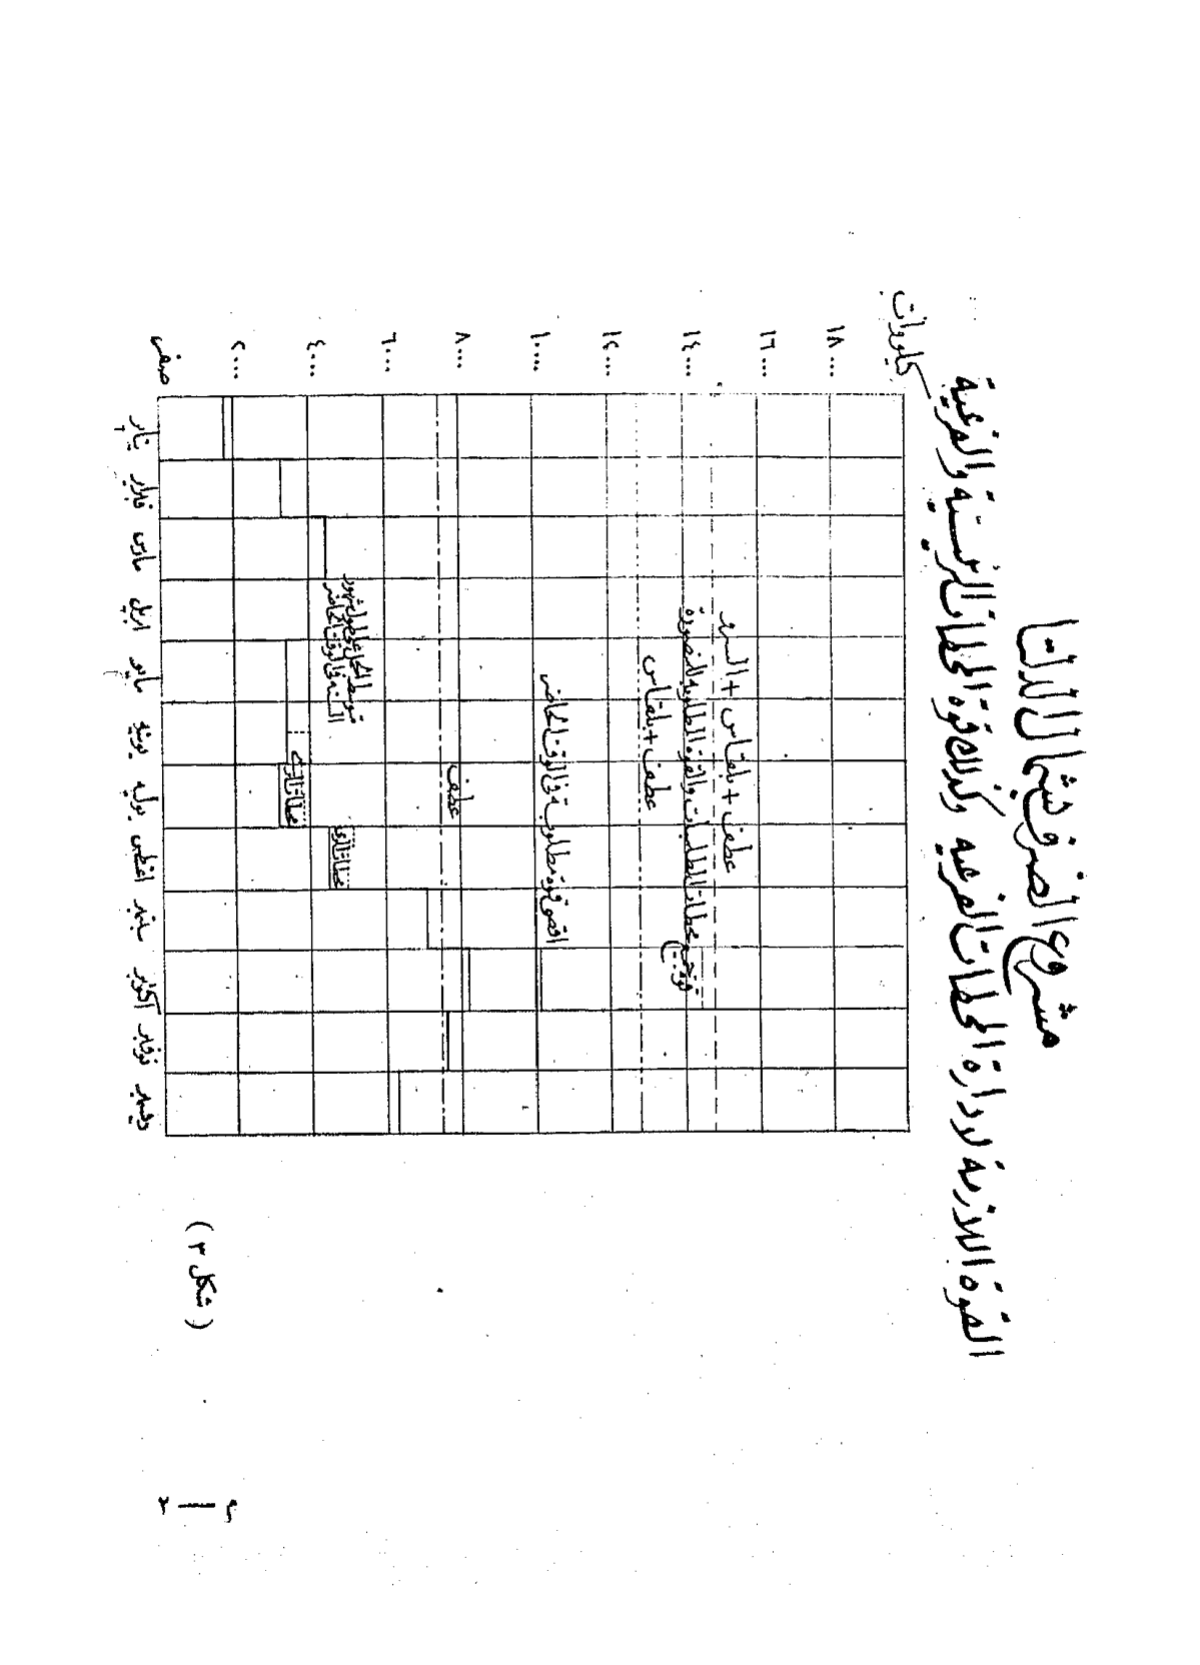 مشروع الصرف بشمال الدلتا
القوة اللازمة لادارة المحطات الفرعيه وكذلك قوة المحطات الرئيسية والفرعية
كيلووات
١٨٠٠٠
١٦٠٠٠
١٤٠٠٠
١٢٠٠٠
١٠٠٠٠
٨٠٠٠
٦٠٠٠
٤٠٠٠
٢٠٠٠
صفر
عطف + بلقاس + السرو
توضع محطات الطلمبات والقوة المطلوبة
عطف + بلقاس
اقصى قوة مطلوبة فى الوقت الحاضر
عطف
متوسط الحمل على طول شهور
السنة فى الوقت الحاضر
يناير
فبراير
مارس
ابريل
مايو
يونيه
يوليه
اغسطس
سبتمبر
اكتوبر
نوفمبر
ديسمبر
( شكل ٣ )
٢ — ٩